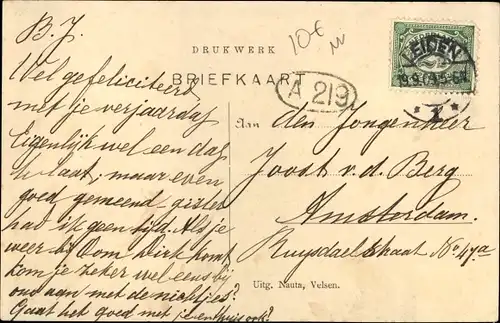 B.J.
Wel gefeliciteerd
met je verjaardag
Eigenlijk wel een dag
te laat, maar even
goed gemeend gister
had ik geen tijd. Als je
weer bij Oom Dirk komt
kom je zeker wel eens bij
ons aan met de nichtjes?
Gaat het goed met je en thuis ook?
DRUKWERK
BRIEFKAART
10€
A 219
LEIDEN
Aan den Jongenheer
Joost v. d. Berg
Amsterdam.
Ruysdaelstraat No 47a
Uitg. Nauta, Velsen.